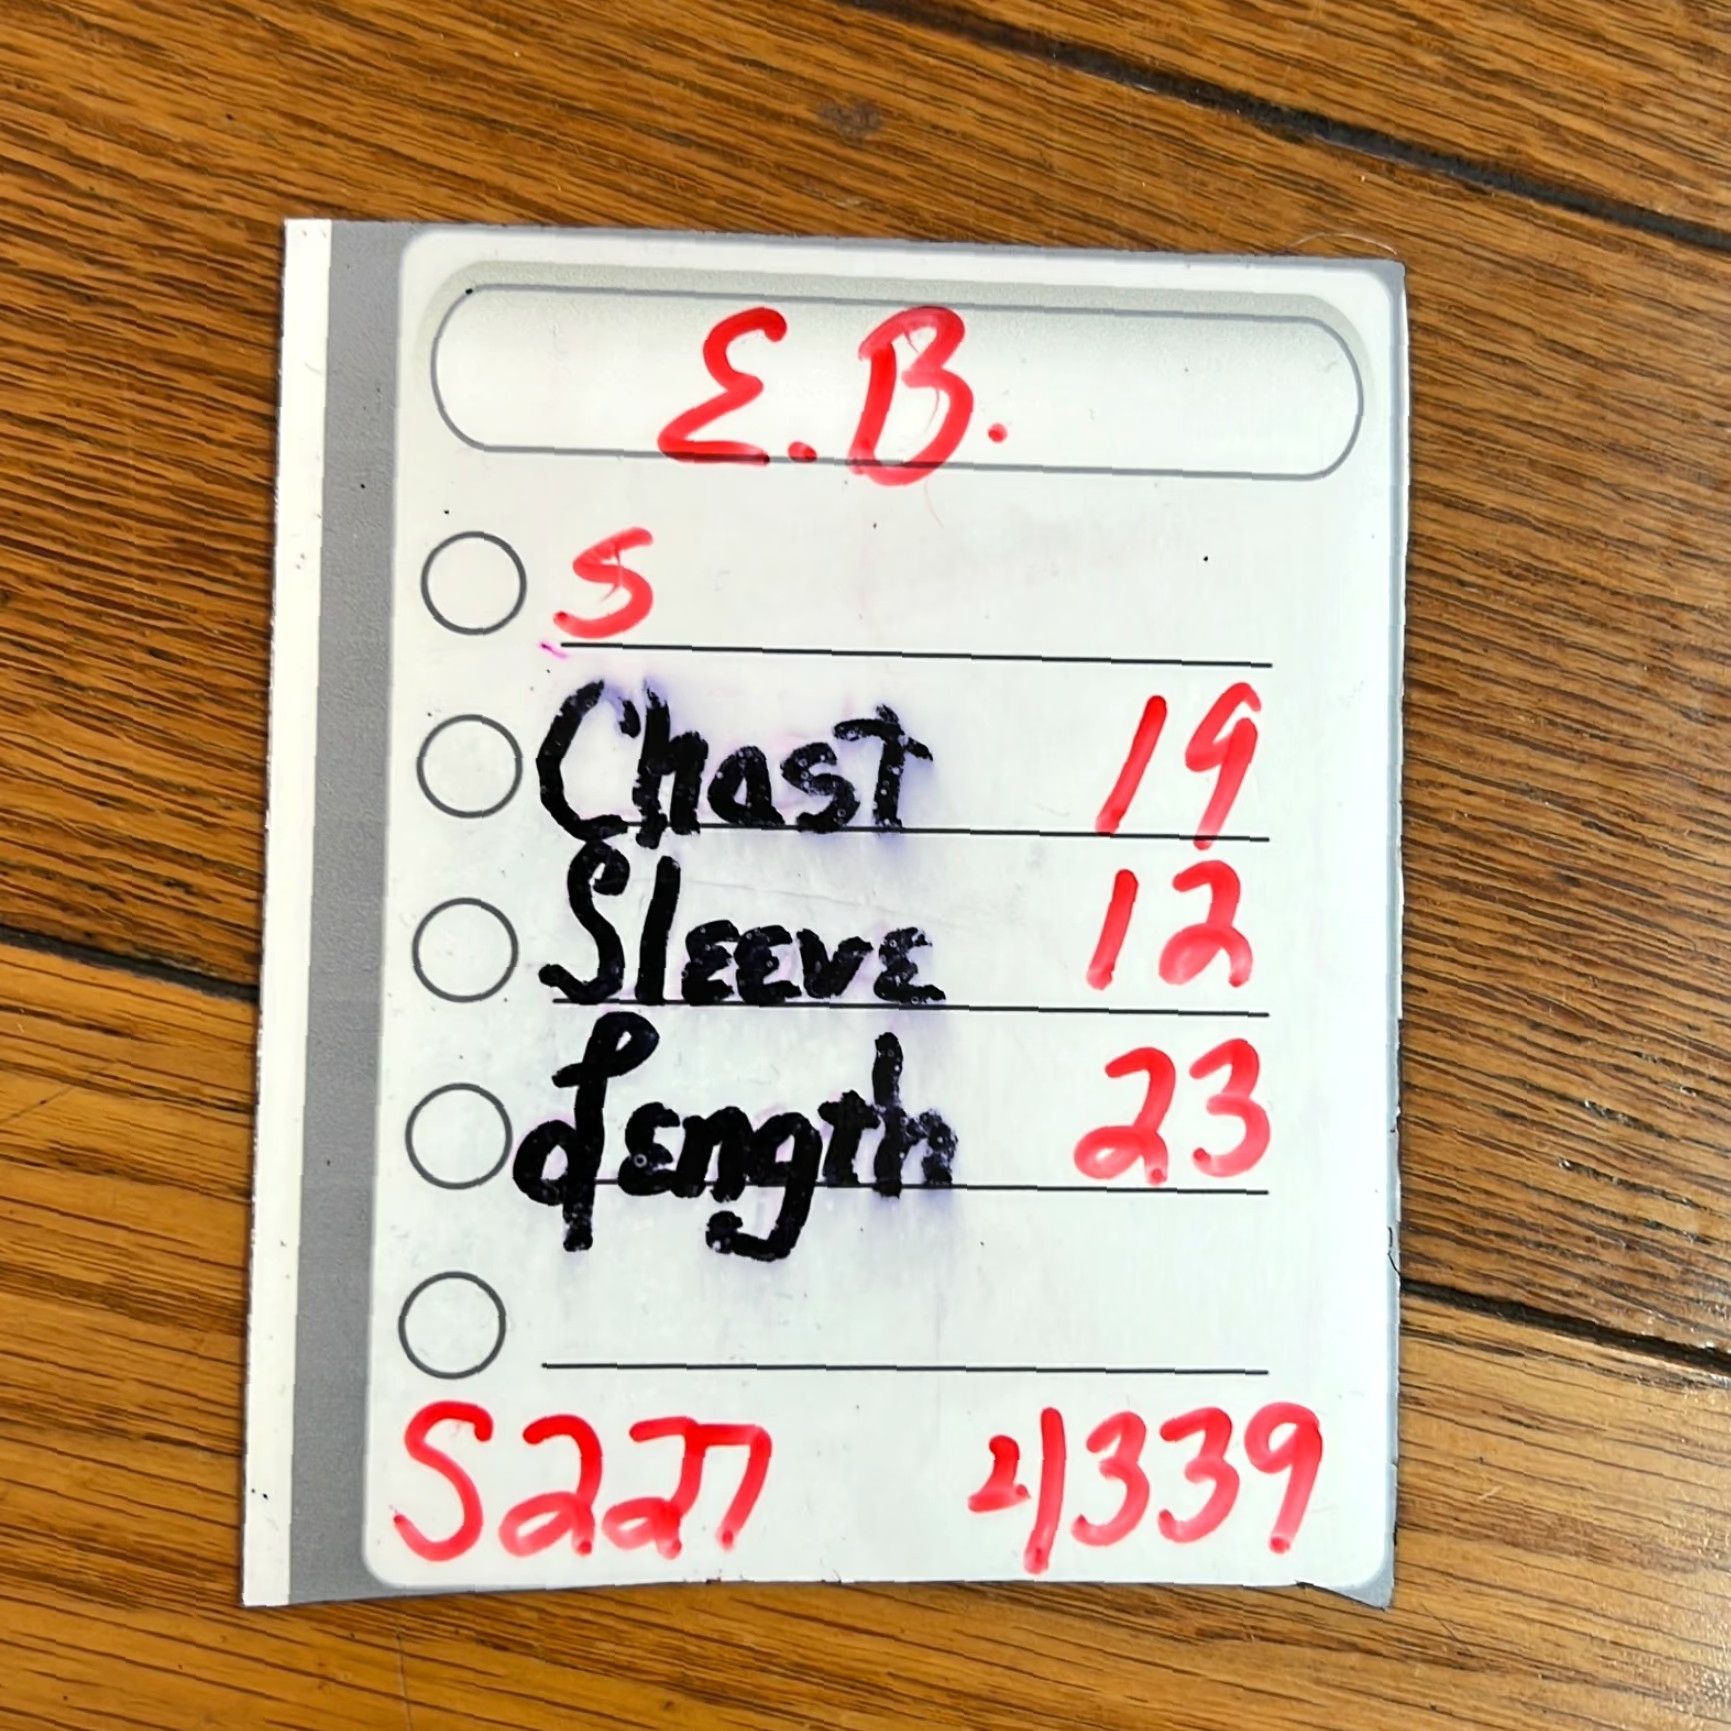 E.B.
S
Chast 19
Sleeve 12
Length 23
S227 4339